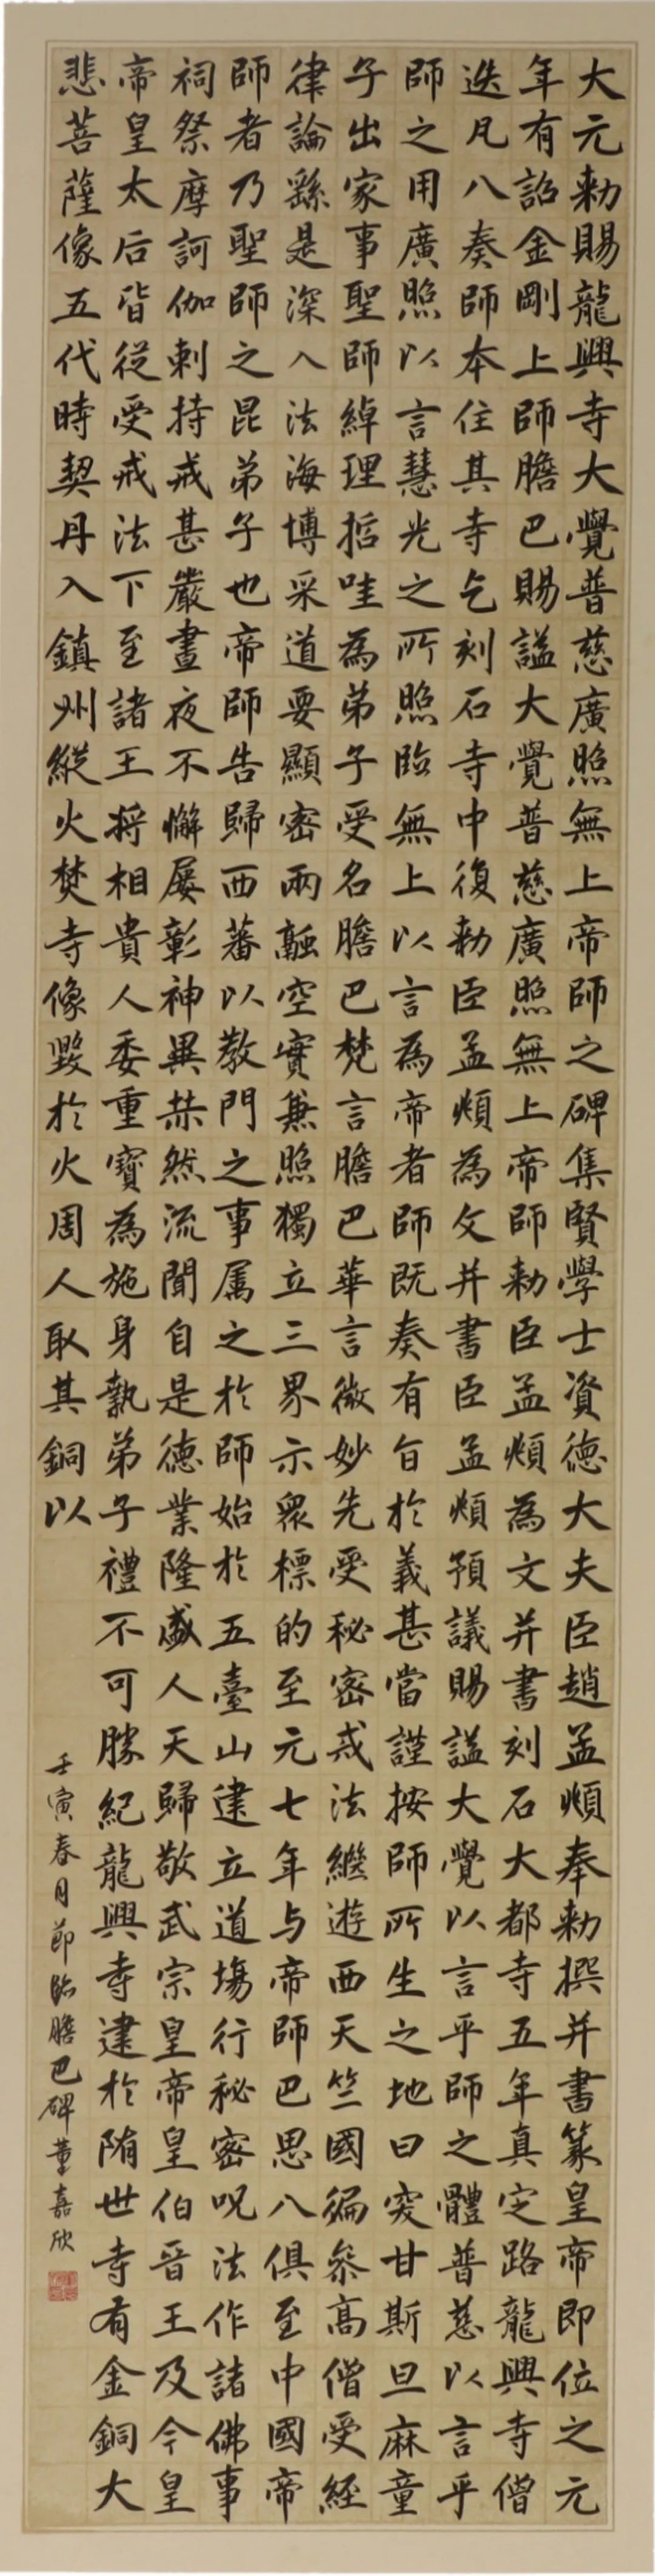 大元勅賜龍興寺大覺普慈廣照無上帝師之碑集賢學士資德大夫臣趙孟頫奉勅撰并書篆皇帝即位之元
年有詔金剛上師膽巴賜謚大覺普慈廣照無上帝師勅臣孟頫為文并書刻石大都寺五年真定路龍興寺僧
迭凡八奏師本住其寺乞刻石寺中復勅臣孟頫為文并書臣孟頫預議賜謚大覺以言乎師之體普慈以言乎
師之用廣照以言慧光之所照臨無上以言為帝者師既奏有旨於義甚當謹按師所生之地曰突甘斯旦麻童
子出家事聖師綽理哲哇為弟子受名膽巴梵言膽巴華言微妙先受秘密戒法繼遊西天竺國徧叅高僧受經
律論繇是深入法海博采道要顯密兩融空實兼照獨立三界示眾標的至元七年与帝師巴思八俱至中國帝
師者乃聖師之昆弟子也帝師告歸西蕃以教門之事属之於師始於五臺山建立道場行秘密呪法作諸佛事
祠祭摩訶伽剌持戒甚嚴晝夜不懈屢彰神異赫然流聞自是德業隆盛人天歸敬武宗皇帝皇伯晉王及今皇
帝皇太后皆從受戒法下至諸王將相貴人委重寶為施身執弟子禮不可勝紀龍興寺建於隋世寺有金銅大
悲菩薩像五代時契丹入鎮州縱火焚寺像毀於火周人取其銅以
壬寅春月節臨膽巴碑董嘉欣